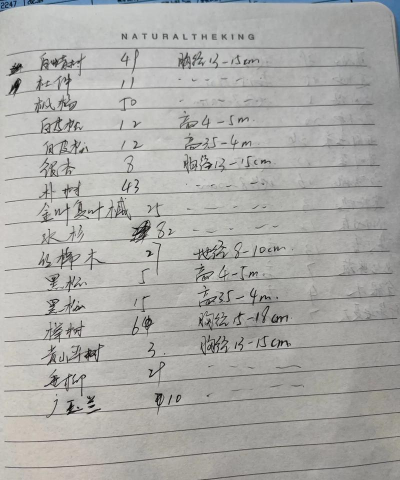 2247
NATURALTHEKING
49 胸径13-15cm.
杜仲 11 - - - - -
50 - - - - -
白皮松 12 高4-5m.
白皮松 12 高35-4m
银杏 8 胸径13-15cm.
朴树 43 - - - - -
金叶复叶槭 25 - - - - -
水杉 82 - - - - -
木 27 地径8-10cm.
黑松 5 高4-5m.
黑松 15 高35-4m.
樟树 6 胸径15-18cm
树 3. 胸径13-15cm
垂柳 29 - - - - -
广玉兰 10 - - - - -